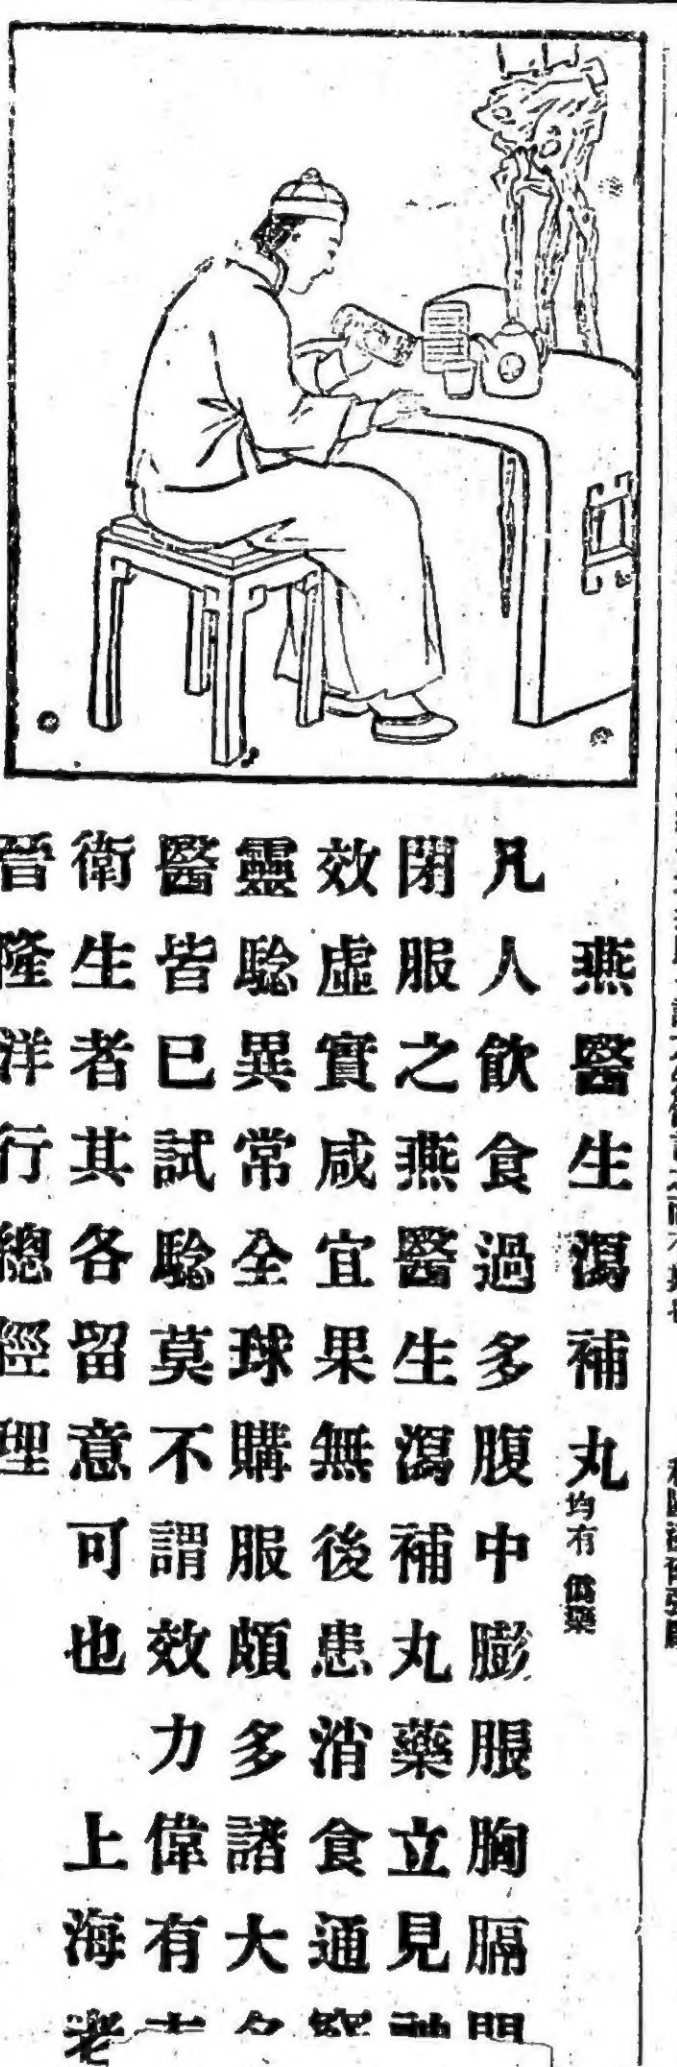 燕醫生瀉補丸 均有
凡人飲食過多腹中膨脹胸膈
閉服之燕醫生瀉補丸藥立見
效虛實咸宜果無後患消食通
靈騐異常全球購服頗多諸大
醫皆已試騐莫不謂效力偉有
衛生者其各留意可也 上海老
晉隆洋行總經理